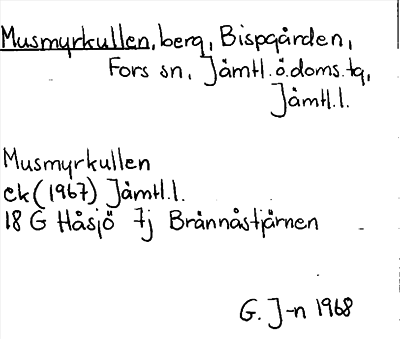 Musmyrkullen, berg, Bispgården,
Fors sn, Jämtl. ö. doms. tg,
Jämtl. l.
Musmyrkullen
ek (1967) Jämtl. l.
18 G Håsjö 7j Brännåstjärnen
G. J-n 1968